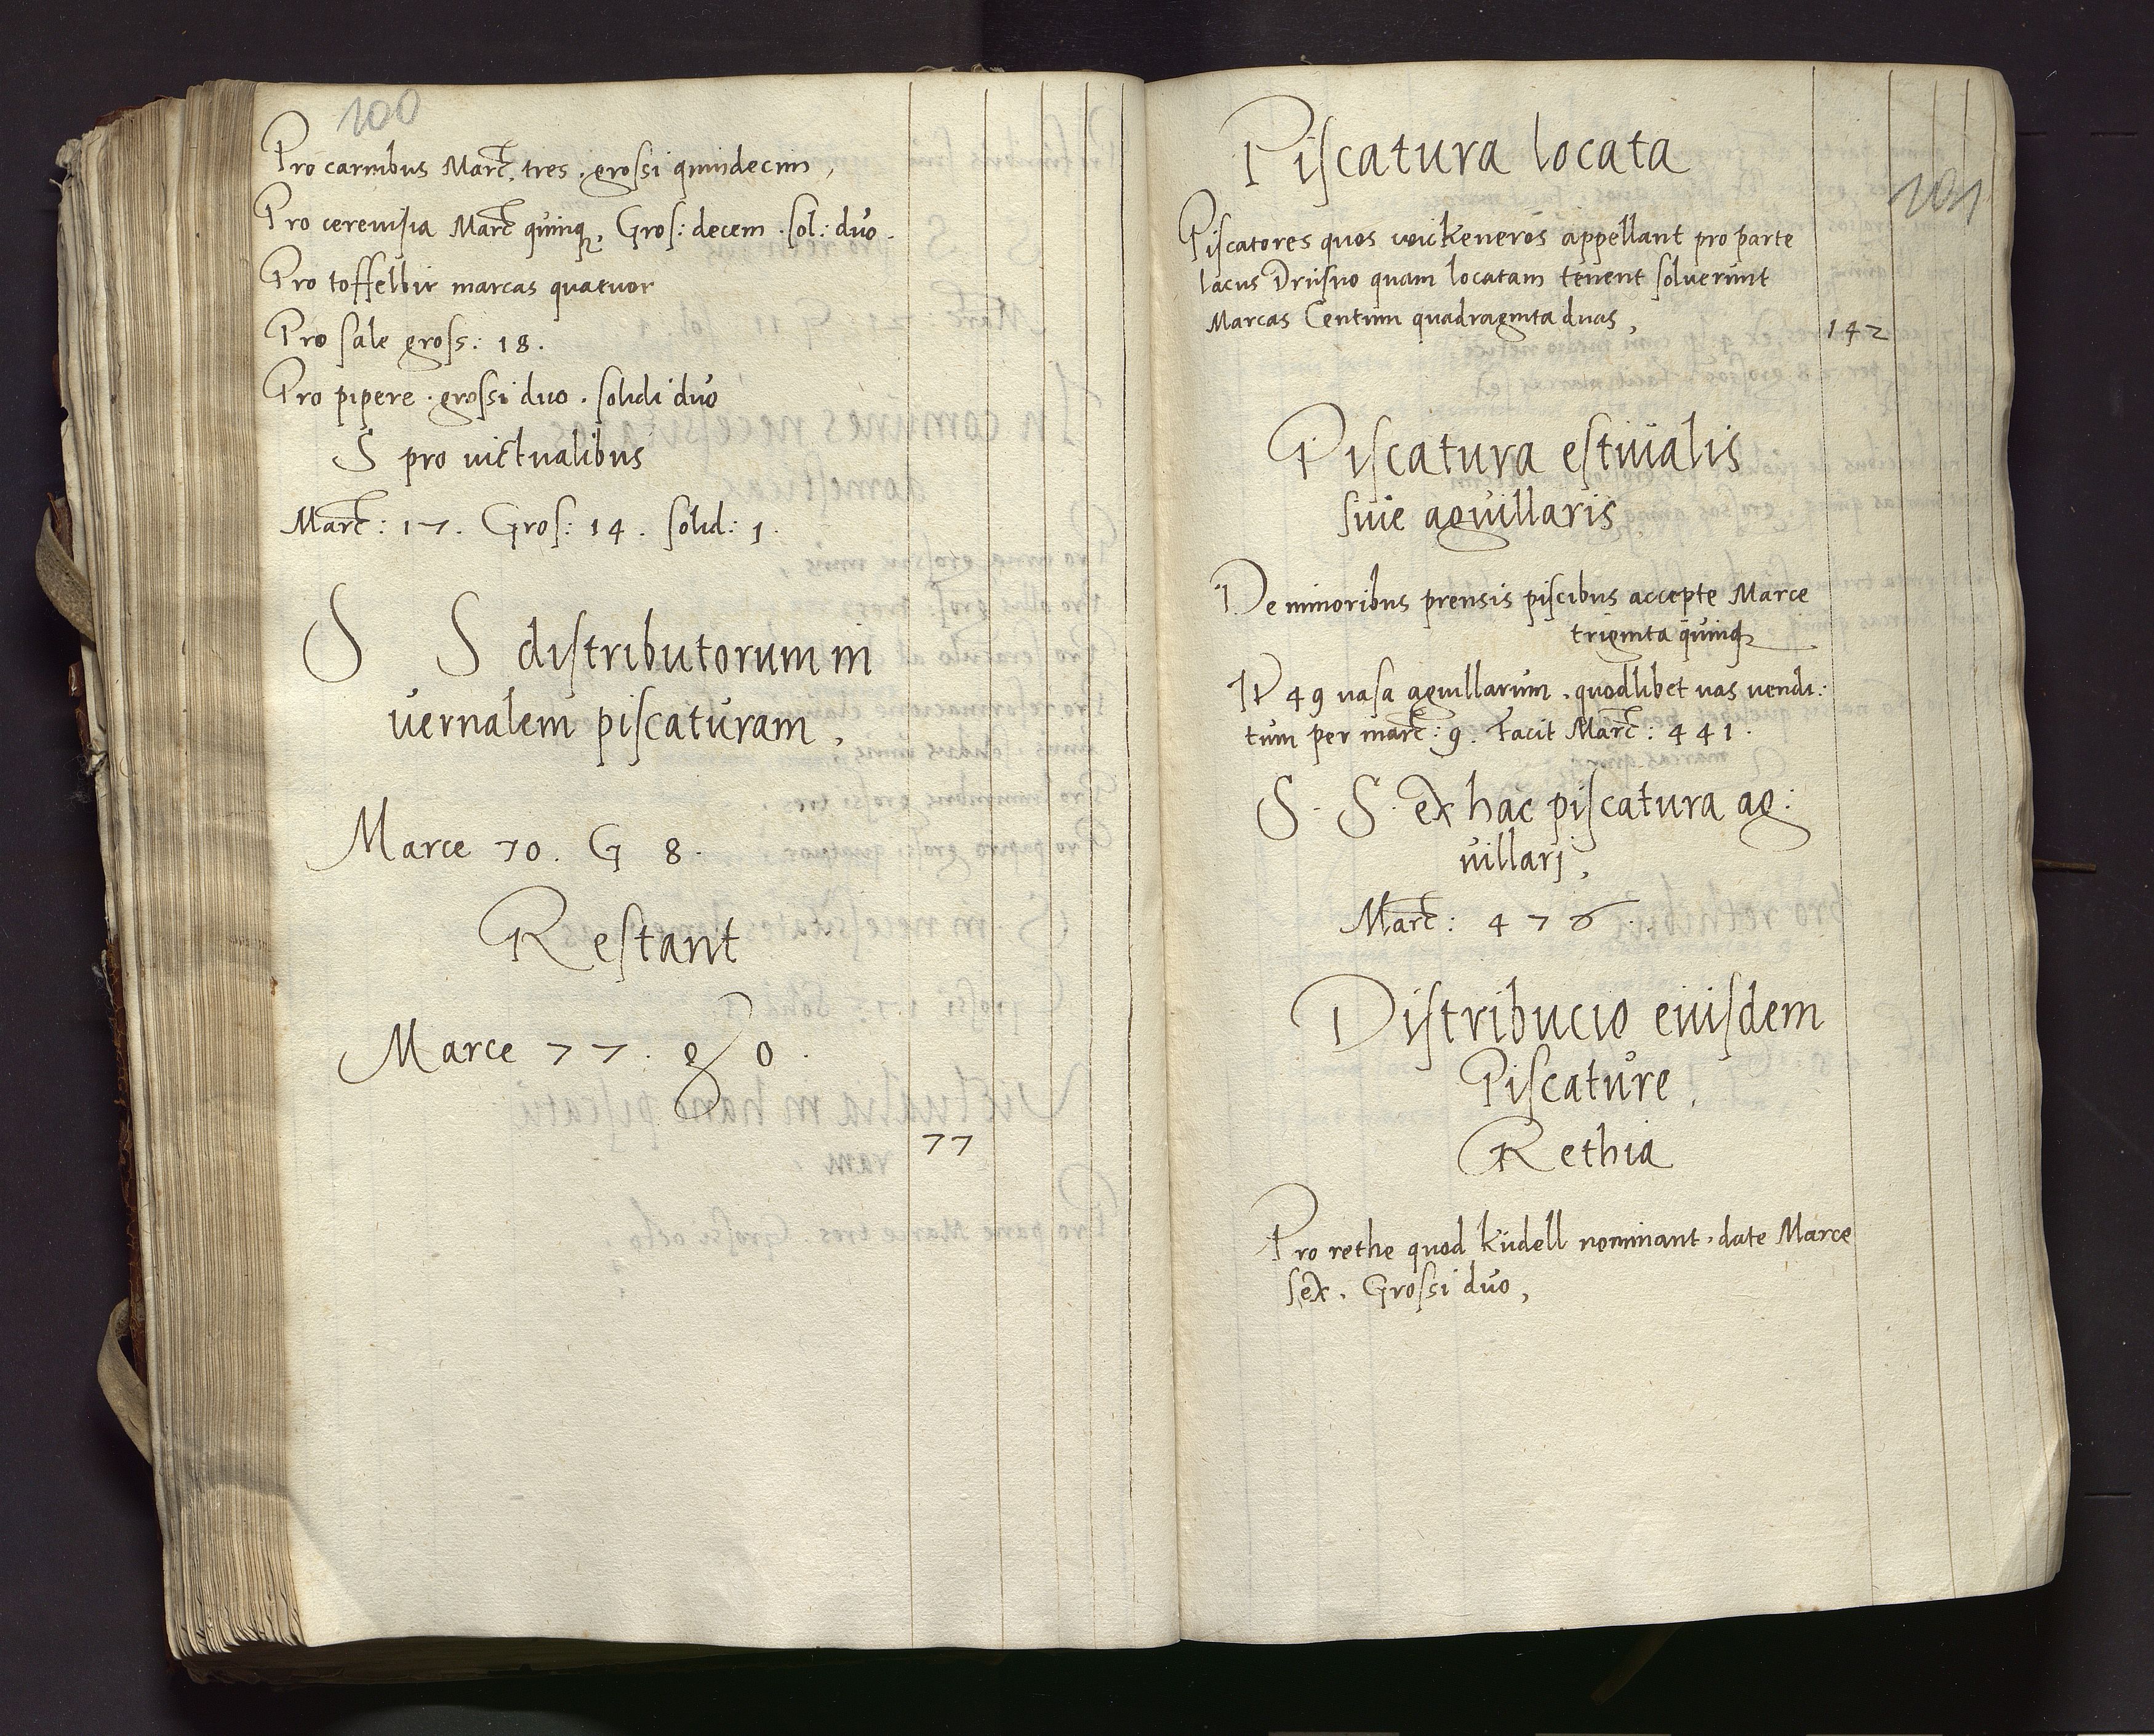 100
Pro carnibus Marc. tres . grossi quindecim ,
Pro cerevisia Marc quinq, Gros: decem . sol: duo .
Pro toffelbir marcas quatuor
Pro sale gross: 18 .
Pro pipere . grossi duo . solidi duo
S pro victualibus
Marc: 17 . Gros: 14 . solid: 1 .
S S distributorum in
vernalem piscaturam ,
Marce 70 . G 8 .
Restant
Marce 77 . g 0 .
77
Piscatura locata
101
Piscatores quos wickeneros appellant pro parte
lacus Drusno quam locatam tenent solverunt
Marcas Centum quadraginta duas ,
142
Piscatura estivalis
sive agvillaris
De minoribus prensis piscibus accepte Marce
triginta quinq
It 49 vasa agvillarum . quodlibet vas vendi:
tum per marc: 9 . Facit Marc: 441 .
S . S . ex hac piscatura ag:
villarj ,
Marc: 476 .
Distribucio eiusdem
Piscature .
Rethia
Pro rethe quod küdell nominant . date Marce
sex . Grossi duo ,